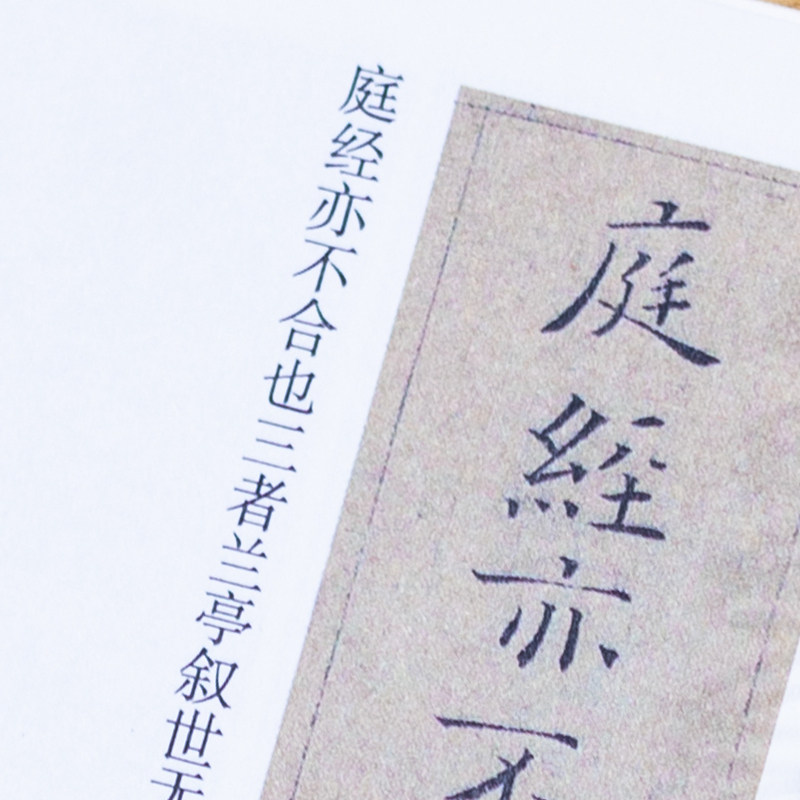 庭經亦不
庭经亦不合也三者兰亭叙世无